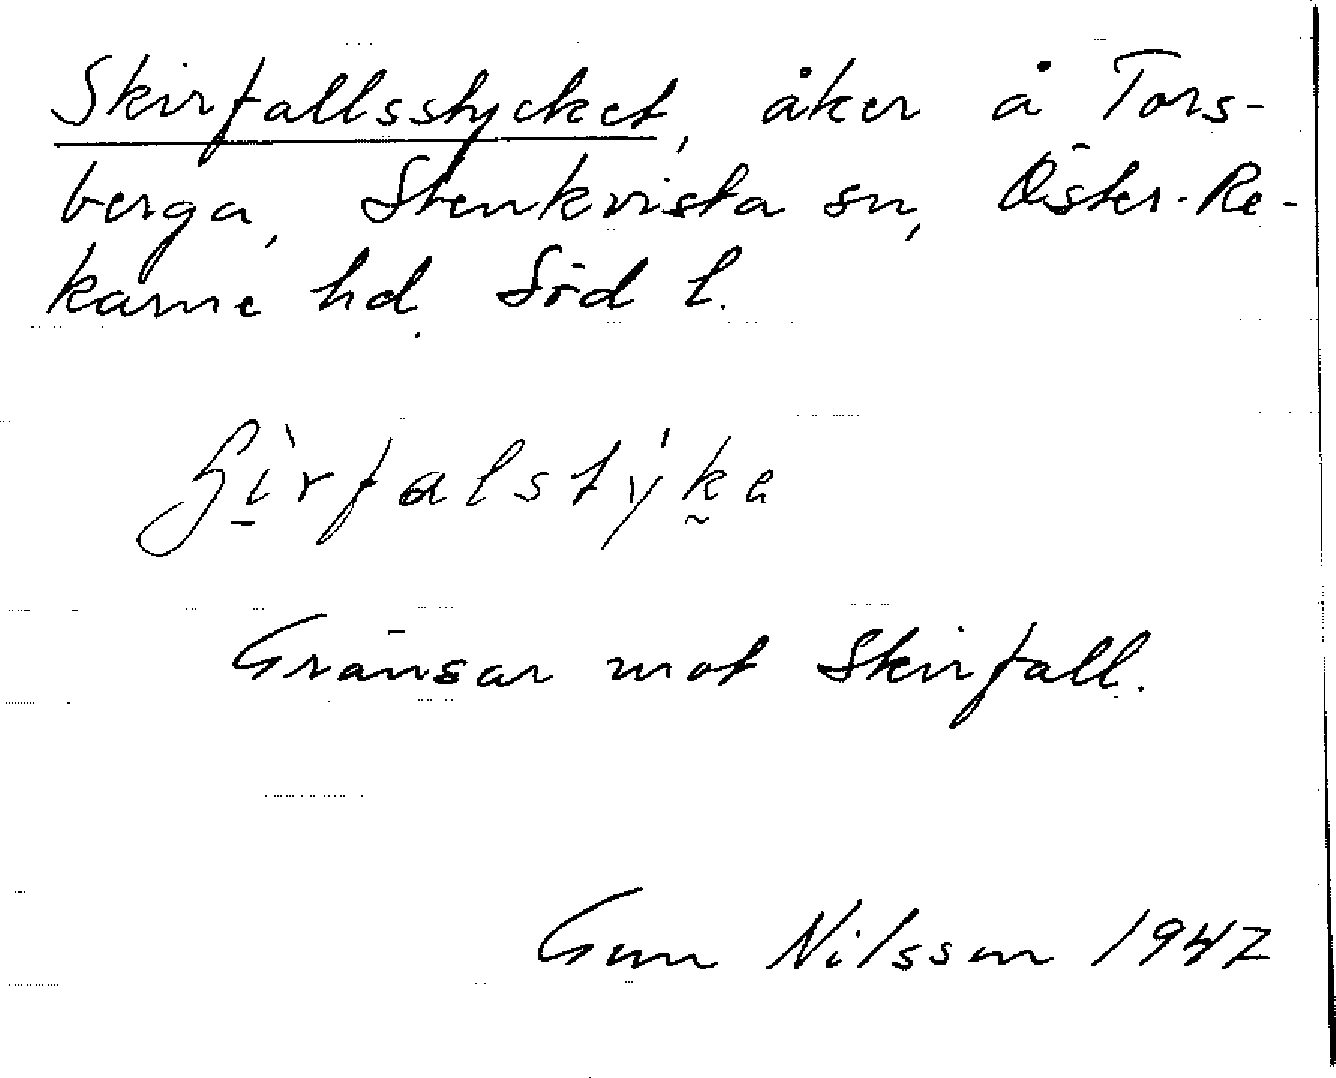 Skirfallsstycket, åker å Tors-
berga, Stenkvista sn, Öster-Re-
karne hd. Söd l.
Gränsar mot Skirfall.
Gun Nilsson 1947